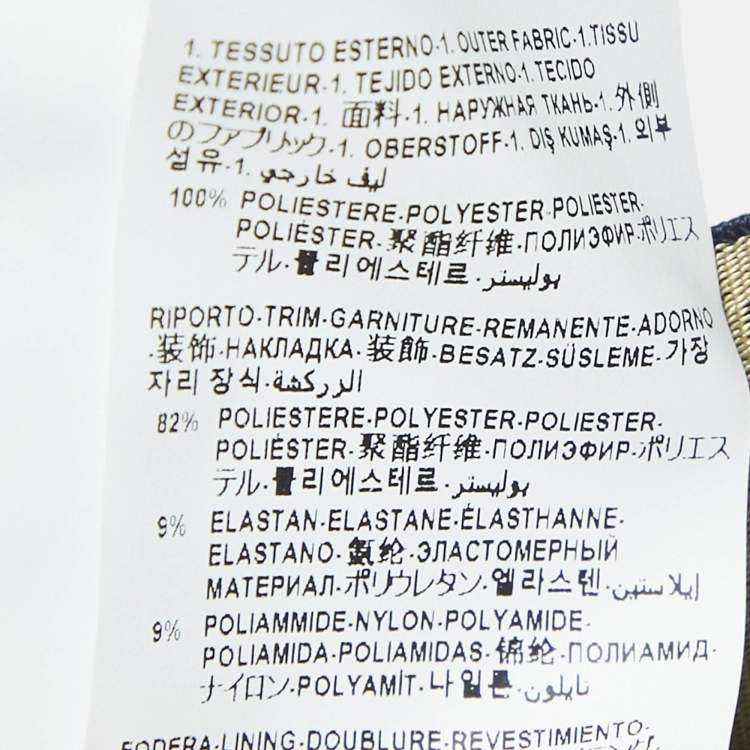 1. TESSUTO ESTERNO-1. OUTER FABRIC-1.TISSU
EXTERIEUR-1. TEJIDO EXTERNO-1.TECIDO
EXTERIOR-1. 面料-1. НАРУЖНАЯ ТКАНЬ-1. 外側
のファブリック-1. OBERSTOFF-1. DIŞ KUMAŞ-1. 외부
섬유-1. ليف خارجي
100% POLIESTERE-POLYESTER-POLIESTER-
POLIÉSTER-聚酯纤维-ПОЛИЭФИР-ポリエス
テル-폴리에스테르-بوليستر
RIPORTO-TRIM-GARNITURE-REMANENTE-ADORNO
-装饰-НАКЛАДКА-装飾-BESATZ-SÜSLEME-가장
자리 장식-الزركشة
82% POLIESTERE-POLYESTER-POLIESTER-
POLIÉSTER-聚酯纤维-ПОЛИЭФИР-ポリエス
テル-폴리에스테르-بوليستر
9% ELASTAN-ELASTANE-ÉLASTHANNE-
ELASTANO-氨纶-ЭЛАСТОМЕРНЫЙ
МАТЕРИАЛ-ポリウレタン-엘라스텐-إيلاستين
9% POLIAMMIDE-NYLON-POLYAMIDE-
POLIAMIDA-POLIAMIDAS-锦纶-ПОЛИАМИД-
ナイロン-POLYAMİT-나일론-نايلون
FODERA-LINING-DOUBLURE-REVESTIMIENTO-